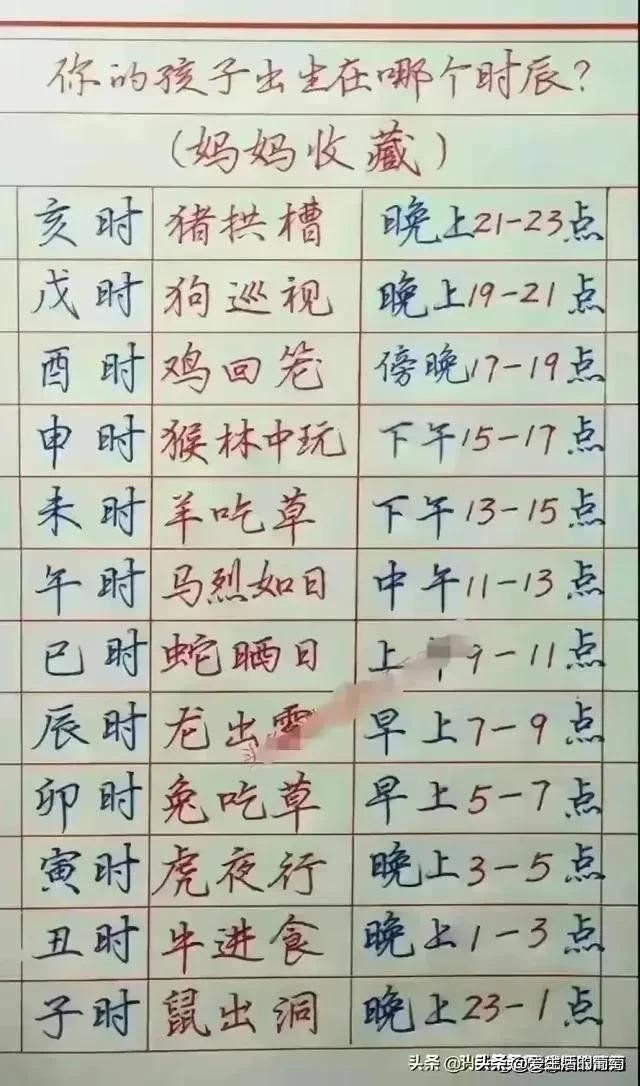 你的孩子出生在哪个时辰?
(妈妈收藏)
亥时 猪拱槽 晚上21-23点
戊时 狗巡视 晚上19-21点
酉时 鸡回笼 傍晚17-19点
申时 猴林中玩 下午15-17点
未时 羊吃草 下午13-15点
午时 马烈如日 中午11-13点
巳时 蛇晒日 上午9-11点
辰时 龙出 早上7-9点
卯时 兔吃草 早上5-7点
寅时 虎夜行 晚上3-5点
丑时 牛进食 晚上1-3点
子时 鼠出洞 晚上23-1点
头条 @爱生活的葡萄